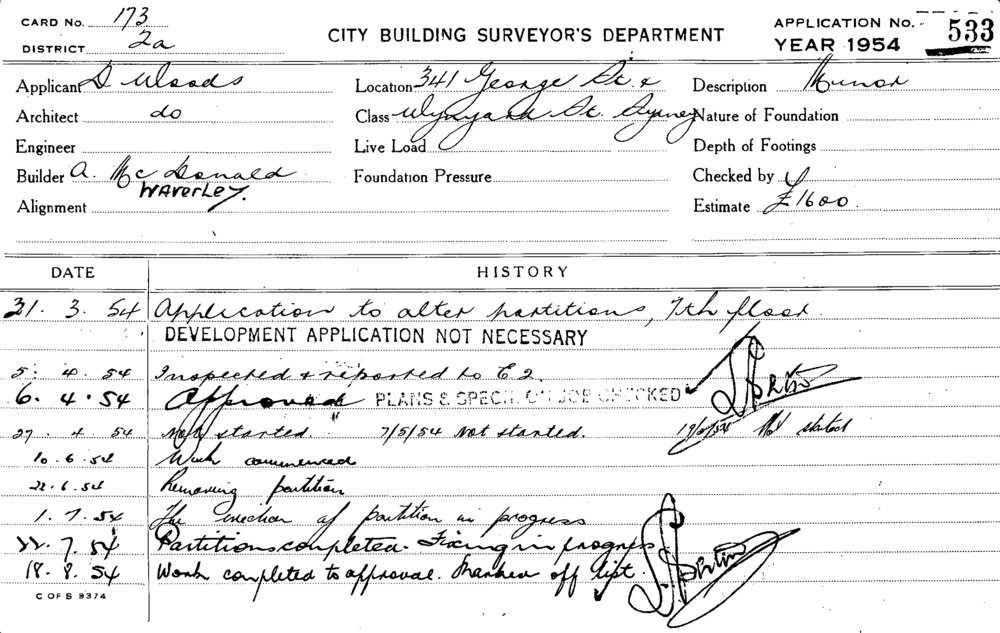 CARD No. 173
DISTRICT 2a
CITY BUILDING SURVEYOR'S DEPARTMENT
APPLICATION No. 533
YEAR 1954
Applicant D Woods
Location 341 George St. &
Description Minor
Architect do
Class Wynyard St. Sydney
Nature of Foundation
Engineer
Live Load
Depth of Footings
Builder A. McDonald
WAVERLEY.
Foundation Pressure
Checked by
Alignment
Estimate £1600
DATE HISTORY
31. 3. 54 Application to alter partitions, 7th floor.
DEVELOPMENT APPLICATION NOT NECESSARY
5. 4. 54 Inspected & reported to E2.
6. 4. 54 Approved PLANS & SPECN. ON JOB CHECKED
27. 4. 54 Not started. 7/5/54 Not started. Not started
10. 6. 54 Work commenced
22. 6. 54 Removing partition
1. 7. 54 The erection of partition in progress
22. 7. 54 Partitions completed. Fixing in progress
18. 8. 54 Work completed to approval. Marked off list.
C OF S 9374